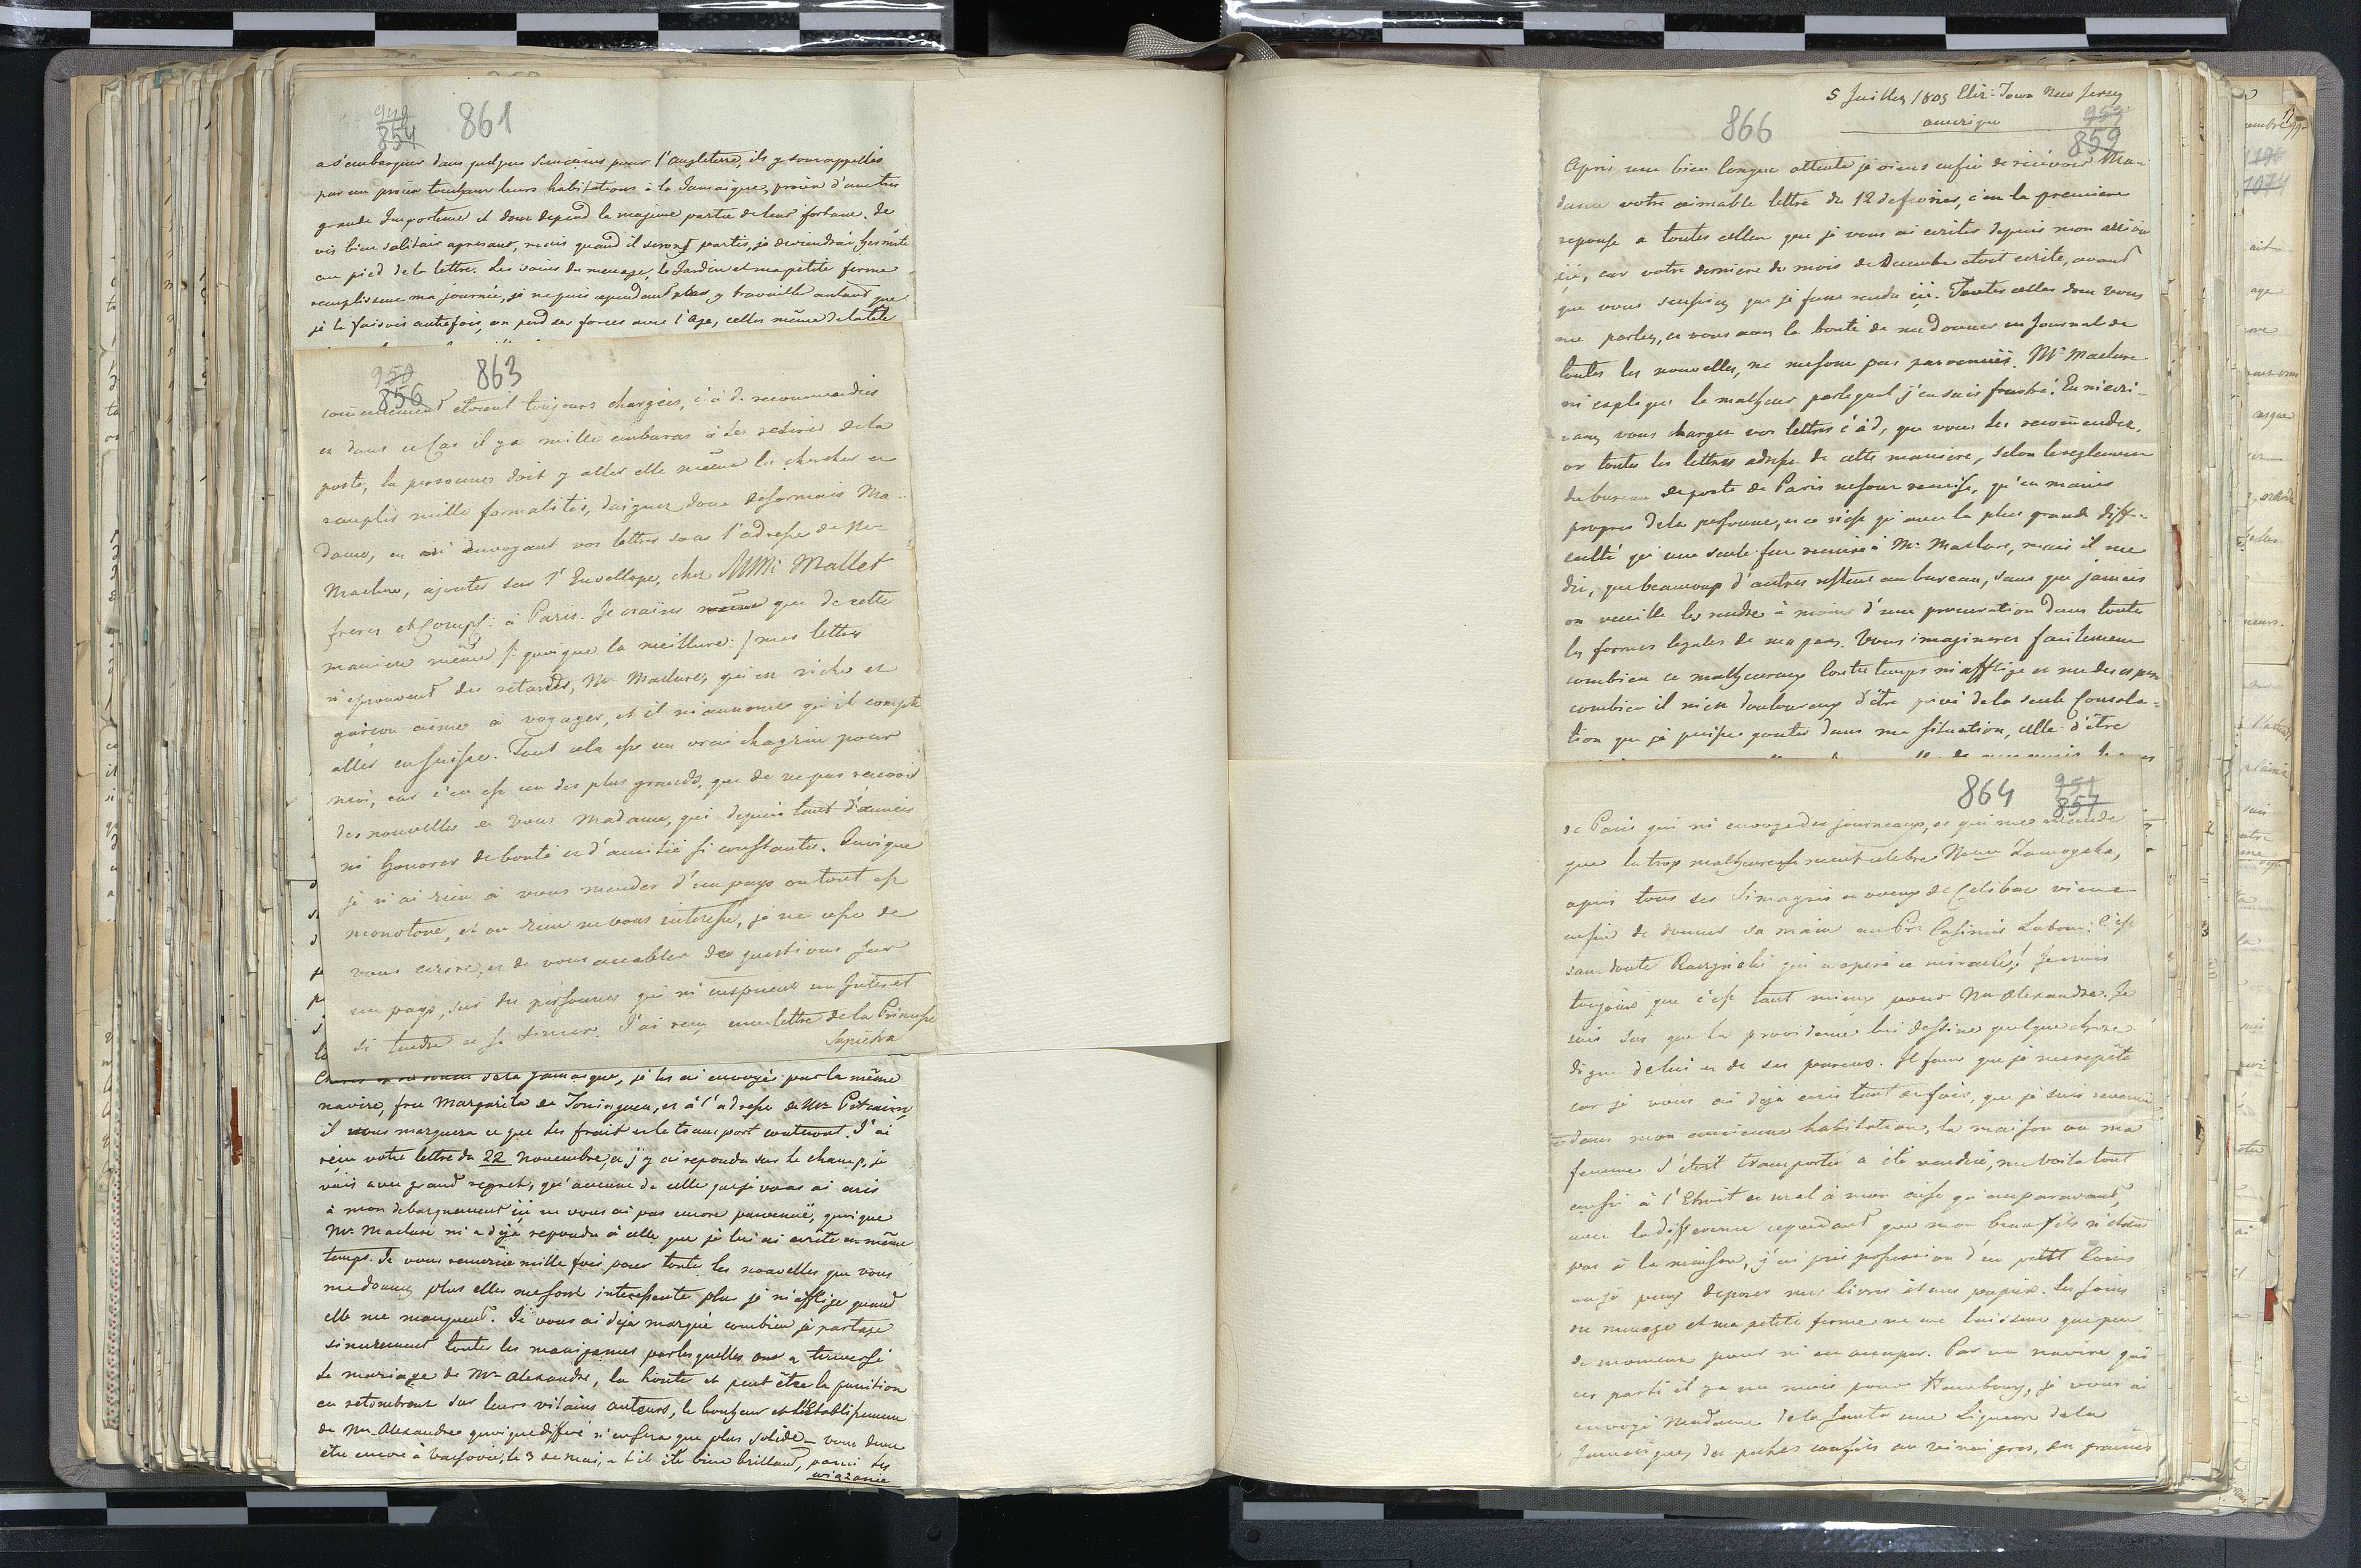 949
854
861
a s'embarquer dans quelques semaines pour l'angleterre, ils y sont appellés
par un procès touchant leurs habitations à la Jamaique, procès d'une tres
grande Importence et dont depend la majeure partie de leur fortune. Je
vis bien solitair apresant, mais quand il seront partis, je deviendrai hermite
au pied de la lettre. Les soins du menage, le Jardin et ma petite ferme
remplissent ma journée, je ne puis cependant plus y travaille autant que
je le faisois autrefois, on perd ses forces avec l'age, celles même de la tête
950
856
863
communement etoient toujours chargéés, c'à d. recommandées
et dans ce Cas il y a mille embaras à les retirer de la
poste, la personnes doit y aller elle même les chercher et
remplir mille formalités, daignez donc desormais Ma-
dame, en envoyant vos lettres sous l'adresse de Mr
Maclure, ajouter sur l'Envellope, chez MMrs Mallet
freres et Comp: à Paris. Je crains même que de cette
maniere même /: quoique la meilleure :/ mes lettres
n'eprouvent des retards, Mr Maclure, qui est riche et
garçon aime à voyager, et il m'annonce qu'il compte
aller en suisse. Tout cela est un vrai chagrin pour
moi, car c'en est un des plus grands, que de ne pas recevoir
des nouvelles de vous Madame, qui depuis tant d'années
m'honorez de bonté et d'amitié si constantes. Quoique
je n'ai rien à vous mander d'un pays ou tout est
monotone, et ou rien ne vous interesse, je ne cesse de
vous ecrire, et de vous accabler de questions sur
un pays, sur des personnes qui m'inspirent un Interet
si tendre et si sincer. J'ai reçu une lettre de la Princesse
Sapieha
de la Jamaique, je les ai envoyés par la même
navire, free Margarita de Toningen, et à l'adresse de Mr Pitcairn
il vous marquera ce que les frait et le transport couteront. J'ai
reçu votre lettre du 22 novembre, et j'y ai repondu sur le champ, je
vois avec grand regret, qu'aucune de celle que je vous ai ecris
à mon debarquement içi ne vous ai pas encore parvenuë, quoique
Mr Maclure m'a déja repondu à celle que je lui ai ecrite en même
temps. Je vous remercie mille fois pour toutes les nouvelles que vous
me donnez plus elles me sont interessente plus je m'afflige quand
elle me manquent. Je vous ai déja marqué combien je partage
sincerement toutes les manigances par lesquelles on a traversé
le mariage de Mr Alexandre, la honte et peut être la punition
en retombront sur leurs vilains auteurs, le bonheur et l'Etablissement
de Mr Alexandre quoique differé n'en sera que plus solide – vous devez
etre encore à Varsovie, le 3 de mai, a t'il été bien brillant, parmi les
wiązanie
5 Juillet 1805 Eliz: Town New Jersey
amerique
866
953
859
Après une bien longue attente je viens enfin de reçevoir Ma-
dame votre aimable lettre du 12 de fevrier, c'est la premiere
reponse a toutes celles que je vous ai ecrites depuis mon arrivée
içi, car votre derniere du mois de Decembre etoit ecrite, avant
que vous sussiez que je fusse rendu içi. Toutes celles dont vous
me parlez, et vous avez la bonté de me donner un Journal de
toutes les nouvelles, ne me sont pas parvenuës. Mr Maclure
m'explique le malheur par lequel j'en suis frustré. En m'ecri-
vant vous chargez vos lettres c'àd, que vous les recommendez,
or toutes les lettres adressé de cette maniere, selon le reglement
du bureau de poste de Paris ne sont remise, qu'en mains
propres de la personne, et ce n'est qu'avec la plus grande diffi-
culté qu'une seule fut remise à Mr Maclure, mais il me
dit, que beaucoup d'autres restent au bureau, sans que jamais
on veuille les rendre à moins d'une procuration dans toute
les formes legales de ma part. Vous imaginerez facilement
combien ce malheureux Contre temps m'afflige et me desespere
combien il m'est douloureux d'être privé de la seule Consola-
tion que je puisse gouter dans ma situation, celle d'être
864
951
857
de Paris qui m'envoye des journeaux, et qui me mande
que la trop malheureusement celebre Mme Zamoyska,
après tous ses Simagrés et voeux de Celibat vient
enfin de donner sa main au Pr: Casimir Lubom: C'est
sans doute qui a operé ce miracle! Je crois
toujours que c'est tant mieux pour Mr Alexandre. Je
suis sur que la providence lui destine quelque chose
digne de lui et de ses parens. Il faut que je me repète
car je vous ai déja ecris tant de fois, que je suis revenu
dans mon ancienne habitation, la maison ou ma
femme s'etoit transportée a été venduë, me voila tout
aussi à l'Etroit et mal à mon aise qu'auparavant,
avec la difference cependant que mon beau fils n'etant
pas à la maison, j'ai pris possession d'un petit Coins
ou je peux deposer mes livres et mes papier. Les soins
du menage et ma petite ferme ne me laissent que peu
de moment pour m'en occuper. Par un navire qui
est parti il y a un mois pour Hambourg, je vous ai
envoyé Madame de la santa une Liqueur de la
Jamaique, des peches confits au vinaigres, des graines